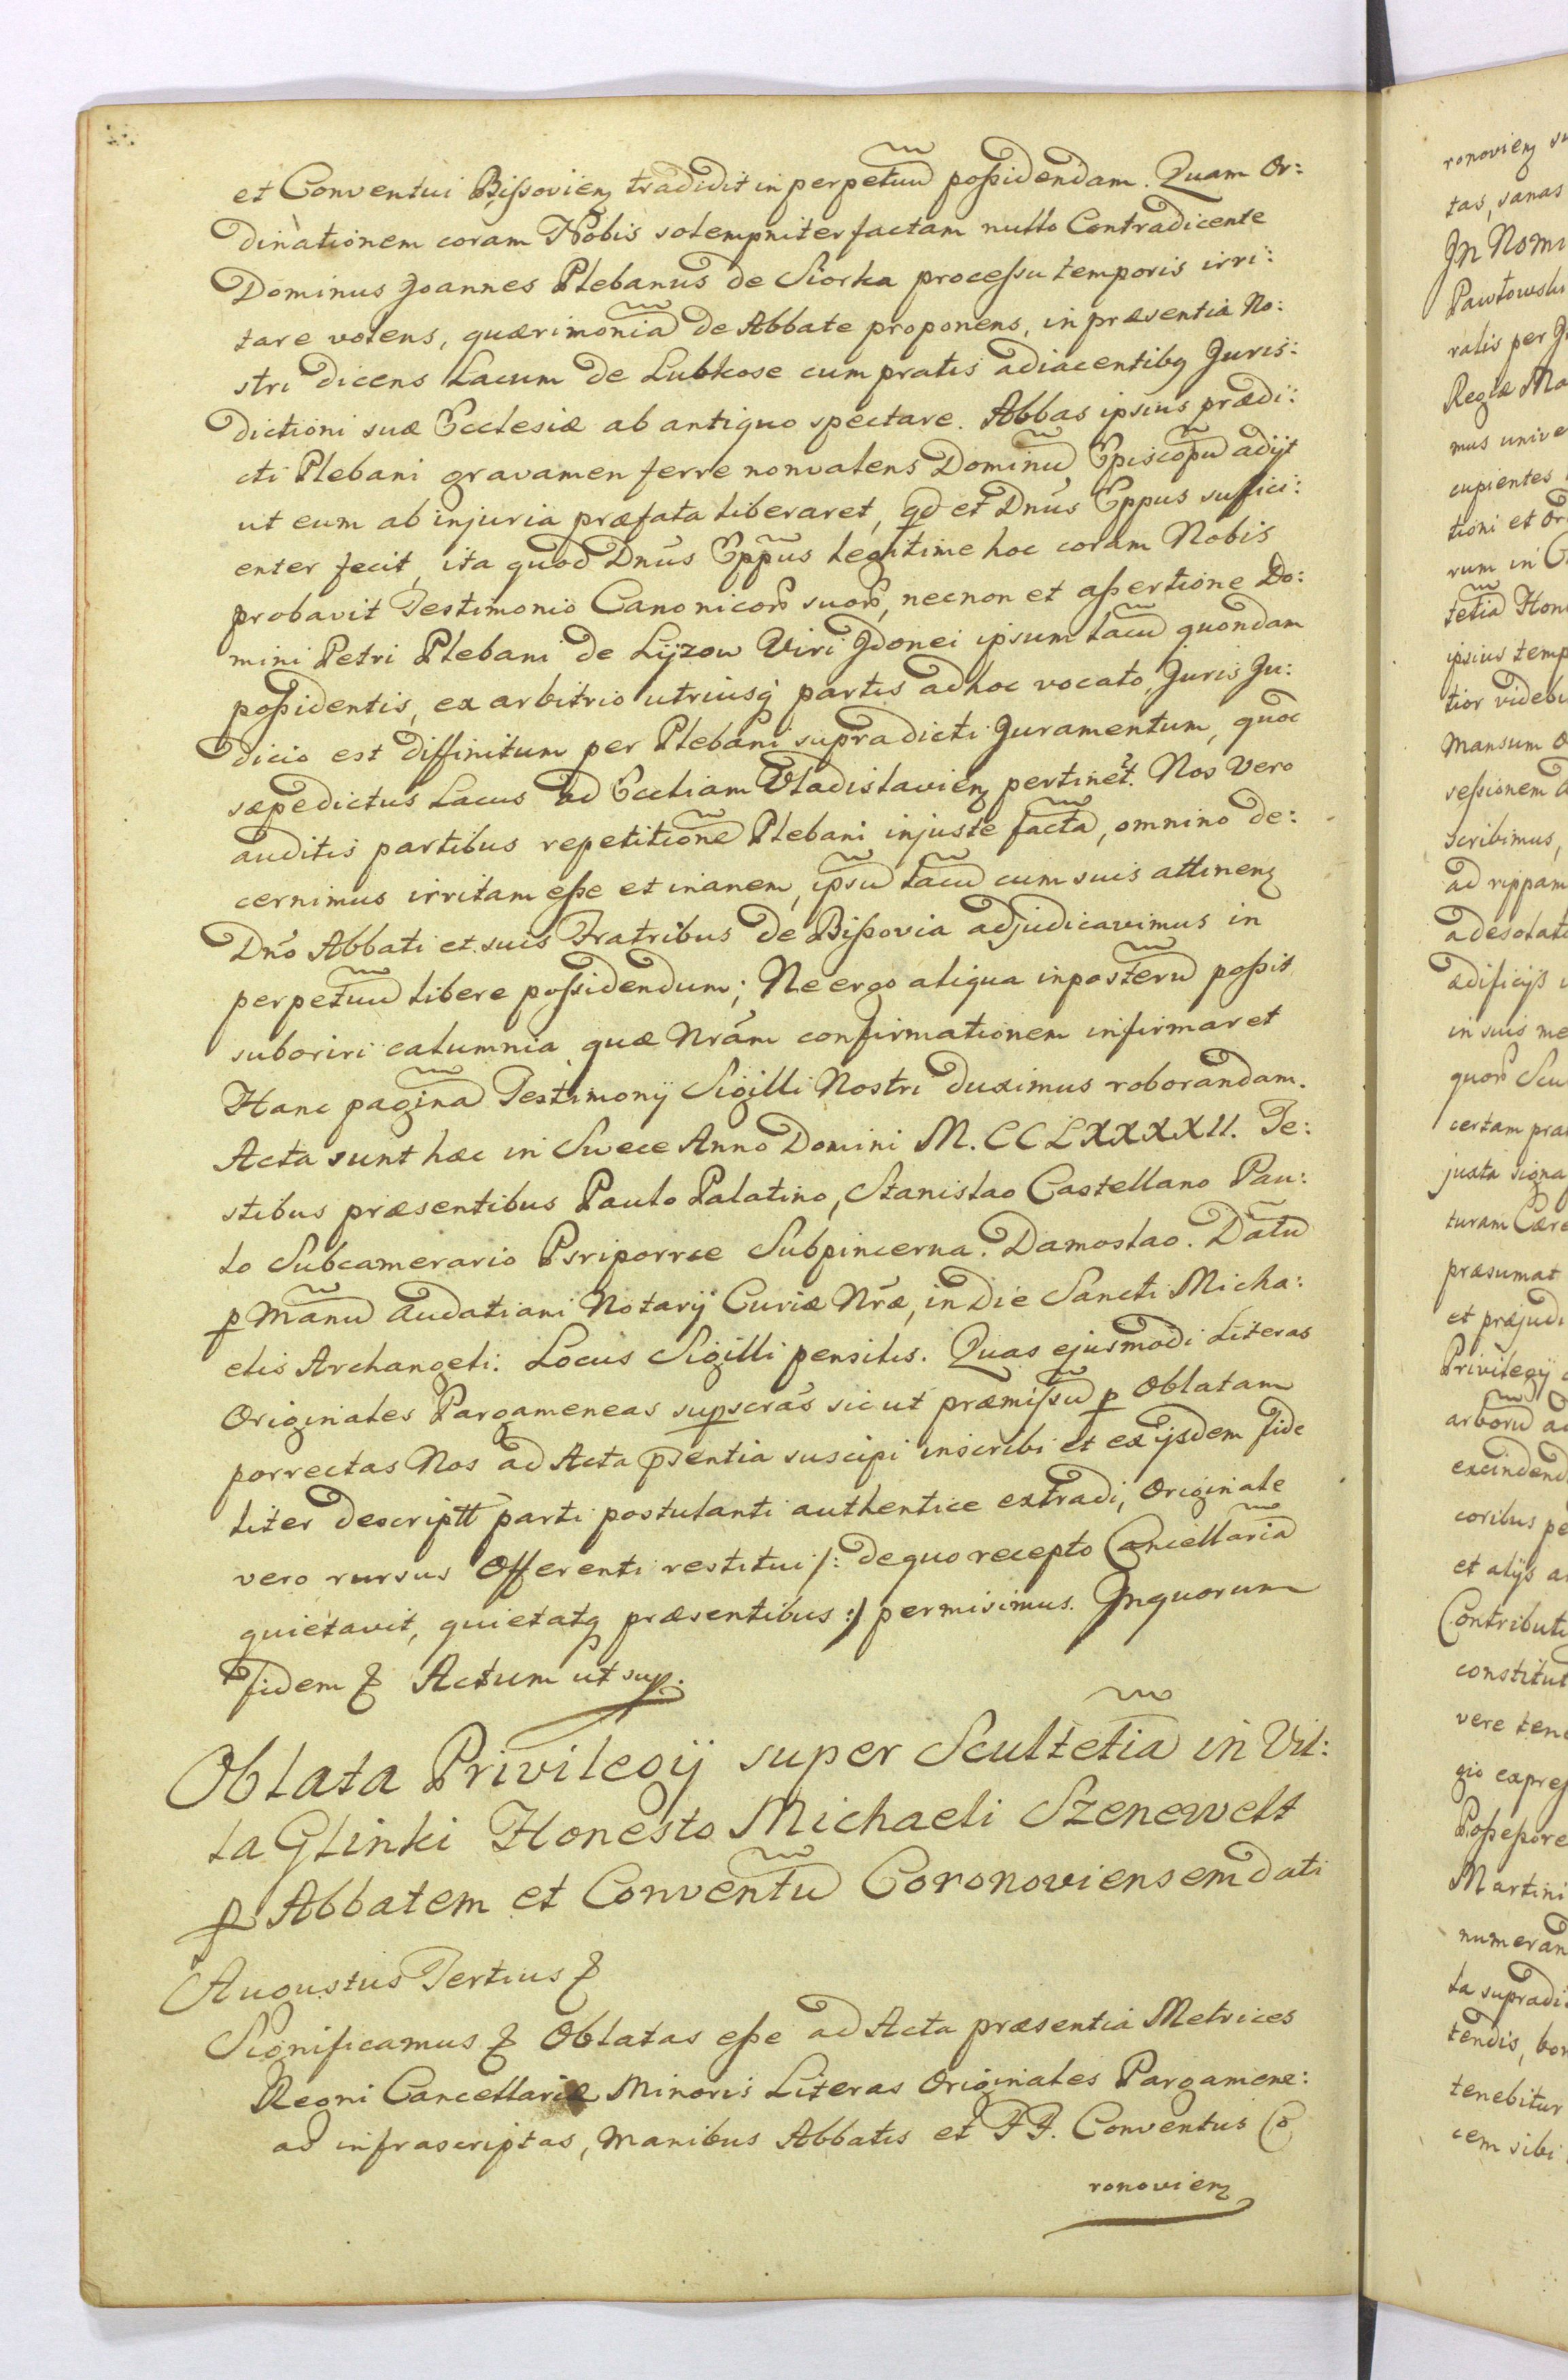 et Conventui Bißovień tradidit in perpetuū poßidendam. Quam Or:
dinationem coram Nobis solempniter factam nullo Contradicente
Dominus Joannes Plebanus de Siorka proceßu temporis irri:
tare volens, quærimoniā de Abbate proponens, in præsentia No:
stri dicens Lacum de Lubkose cum pratis adiacentibq Juris:
dictioni suæ Ecclesiæ ab antiquo spectare. Abbas ipsius prædi:
cti Plebani gravamen ferre nonvalens Dominū Episcopū adijt
ut eum ab injuria præfata liberaret, qd et Dnūs Eppus suffici:
enter fecit, ita quod Dnūs Epp̃us legitime hoc coram Nobis
probavit Testimonio Canonicorꝝ suorꝝ, necnon et aßertione Do:
mini Petri Plebani de Lijzow Viri Jdonei ipsum lacū quondam
poßidentis, ex arbitrio utriusq partis adhoc vocato, Juris Ju:
dicio est diffinitum per Plebani supradicti Juramentum, quoc
sæpedictus Lacus ad Eccliam Vladislavień pertinet. Nos vero
auditis partibus repetitionē Plebani injuste factā, omnino de:
cernimus irritam eße et inanem, ipsū lacū cum suis attineń
Dnō Abbati et suis Fratribus de Bißovia adjudicavimus in
perpetuū libere poßidendum; Ne ergo aliqua inposterū poßit
suboriri calumnia quæ Nrām confirmationem infirmaret
Hanc paginā Testimonij Sigilli Nostri duximus roborandam.
Acta sunt hæc in Swece Anno Domini M. CCLXXXXII. Te:
stibus præsentibus Paulo Palatino, Stanislao Castellano Pau:
lo Subcamerario Psriporrce Subpincerna. Damoslao. Datū
p Manū Audatiani Notarij Curiæ Nrǣ, in Die Sancti Micha:
elis Archangeli. Locus Sigilli pensilis. Quas ejusmodi Literas
Originales Pargameneas supscrās sicut præmißū p Oblatam
porrectas Nos ad Acta p̃sentia suscipi inscribi et ex ijsdem fide
liter descriptt parti postulanti authentice extradi, Originale
vero rursus Offerenti restitui /: dequo recepto Cancellariā
quietavit, quietatq præsentibus :/ permisimus. Jnquorum
fidem & Actum ut sup.
Oblata Privilegij super Scultetiā in Vil:
la Glinki Honesto Michaeli Szenewelt
p Abbatem et Conventū Coronoviensem dati
Augustus Tertius &
Significamus & Oblatas eße ad Acta præsentia Metrices
Regni Cancellariæ Minoris Literas Originales Pargamene:
as infrascriptas, Manibus Abbatis et FF. Conventus Co
ronovień
ronovień
tas, sanas
Jn Nomi
Pawłowski
ralis per
Regiæ Ma
mus unive
cupientes
tioni et Or
rum in
tetiā Hon
ipsius temp
tior videbi
Mansum
seßionem
scribimus,
ad rippam
adesolat
ædificijs
in suis me
quorꝝ Scu
certam pra
juxta signa
turam Cære
præsumat
et præjudi
Privilegij
arborū ad
excindend
coribus pe
et alijs
Contributi
constitut
vere tene
gio expreß
Poßeßore
Martini
numeran
ta supradi
tendis, bo
tenebitur
cem sibi